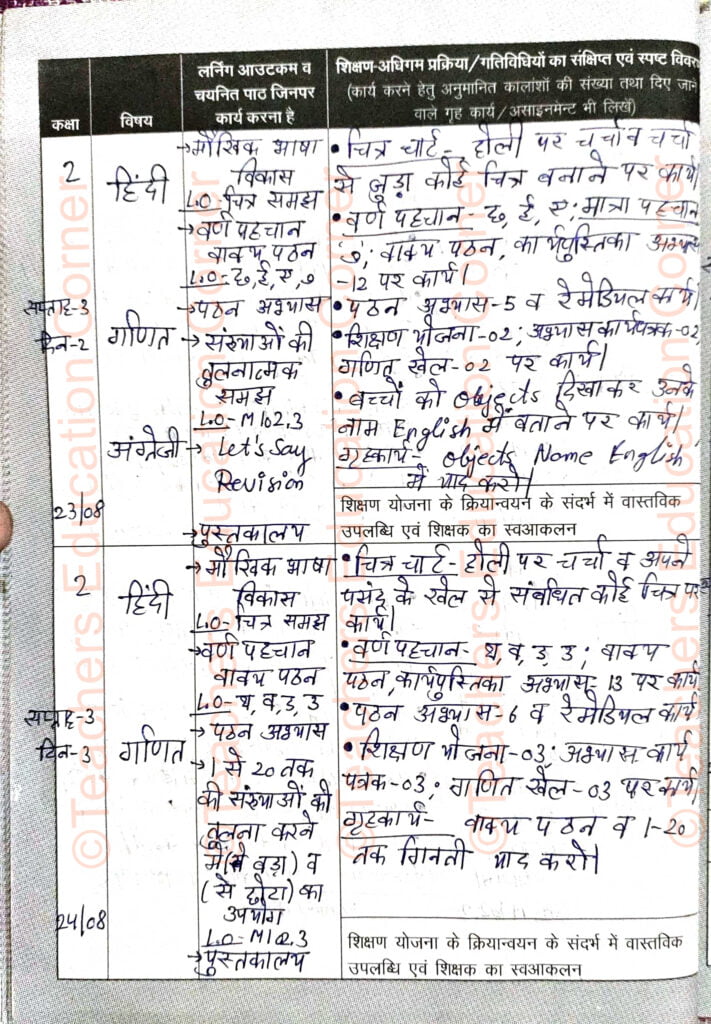 कक्षा
विषय
लर्निंग आउटकम व
चयनित पाठ जिनपर
कार्य करना है
शिक्षण-अधिगम प्रक्रिया/गतिविधियों का संक्षिप्त एवं स्पष्ट विवर
(कार्य करने हेतु अनुमानित कालांशों की संख्या तथा दिए जाने
वाले गृह कार्य/असाइनमेंट भी लिखें)
2
हिंदी
सप्ताह-3
दिन-2
गणित
अंग्रेजी
23/08
→मौखिक भाषा
विकास
L.O-चित्र समझ
→वर्ण पहचान
वाक्य पठन
L.O-छ, ई, ए,
→पठन अभ्यास
→संख्याओं की
तुलनात्मक
समझ
L.O-M102.3
→Let's Say
Revision
→पुस्तकालय
•चित्र चार्ट- होली पर चर्चा व चर्चा
से जुड़ा कोई चित्र बनाने पर कार्य।
•वर्ण पहचान- छ, ई, ए; मात्रा पहचान
वाक्य पठन, कार्यपुस्तिका अभ्यास
-12 पर कार्य।
•पठन अभ्यास-5 व रेमेडियल कार्य।
•शिक्षण योजना-02, अभ्यास कार्यपत्रक-02,
गणित खेल-02 पर कार्य।
•बच्चों को objects दिखाकर उनके
नाम English में बताने पर कार्य।
गृहकार्य- objects Name English
में याद करो।
शिक्षण योजना के क्रियान्वयन के संदर्भ में वास्तविक
उपलब्धि एवं शिक्षक का स्वआकलन
2
हिंदी
सप्ताह-3
दिन-3
गणित
24/08
→मौखिक भाषा
विकास
L.O-चित्र समझ
→वर्ण पहचान
वाक्य पठन
L.O-थ, व, ड, उ
→पठन अभ्यास
→1 से 20 तक
की संख्याओं की
तुलना करने
में(से बड़ा) व
(से छोटा) का
उपयोग
L.O-M102.3
→पुस्तकालय
•चित्र चार्ट- होली पर चर्चा व अपने
पसंद के खेल से संबंधित कोई चित्र पर
कार्य।
•वर्ण पहचान- थ, व, ड, उ; वाक्य
पठन, कार्यपुस्तिका अभ्यास-13 पर कार्य
•पठन अभ्यास-6 व रेमेडियल कार्य
•शिक्षण योजना-03; अभ्यास कार्य
पत्रक-03; गणित खेल-03 पर कार्य।
गृहकार्य- वाक्य पठन व 1-20
तक गिनती याद करो।
शिक्षण योजना के क्रियान्वयन के संदर्भ में वास्तविक
उपलब्धि एवं शिक्षक का स्वआकलन
©Teachers Education Corner
©Teachers Education Corner
©Teachers Education Corner
©Teachers Education Corner
©Teachers Education Corner